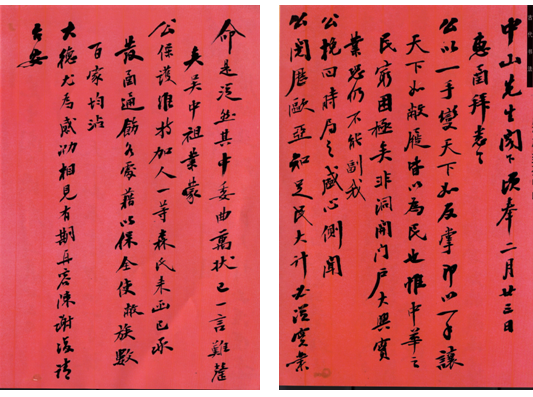 中山先生閣下頃奉二月廿三日
惠函拜悉
公以一手變天下如反掌即以一手讓
天下如敝屣皆以為民也惟中華之
民窮困極矣非洞開門戶大興實
業恐仍不能副我
公挽回時局之盛心側聞
公閱歷歐亞知足民大計必從實業
命是從然其中委曲萬狀已一言難罄
矣吳中祖業蒙
公保護維持加人一等森氏來函已承
發函通飭各處藉以保全使敝族數
百家均沾
大德尤為感泐相見有期再容陳謝復請
大安